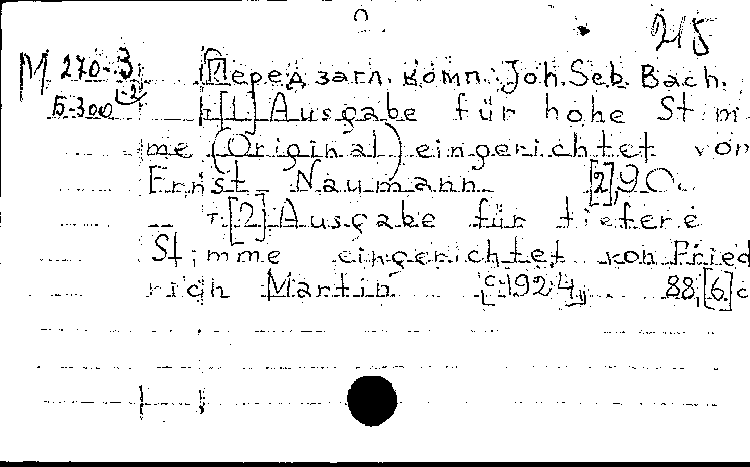 215
М 270-3 Перед загл. комп.: Joh. Seb. Bach.
Б-300 -2 т.[1] Ausgabe für hohe Stim
me (Original) eingerichtet von
Ernst Naumann [2],90с.
т.[2] Ausgabe für tiefere
Stimme eingerichtet von Fried
rich Martin с.1924, 88,[6]с